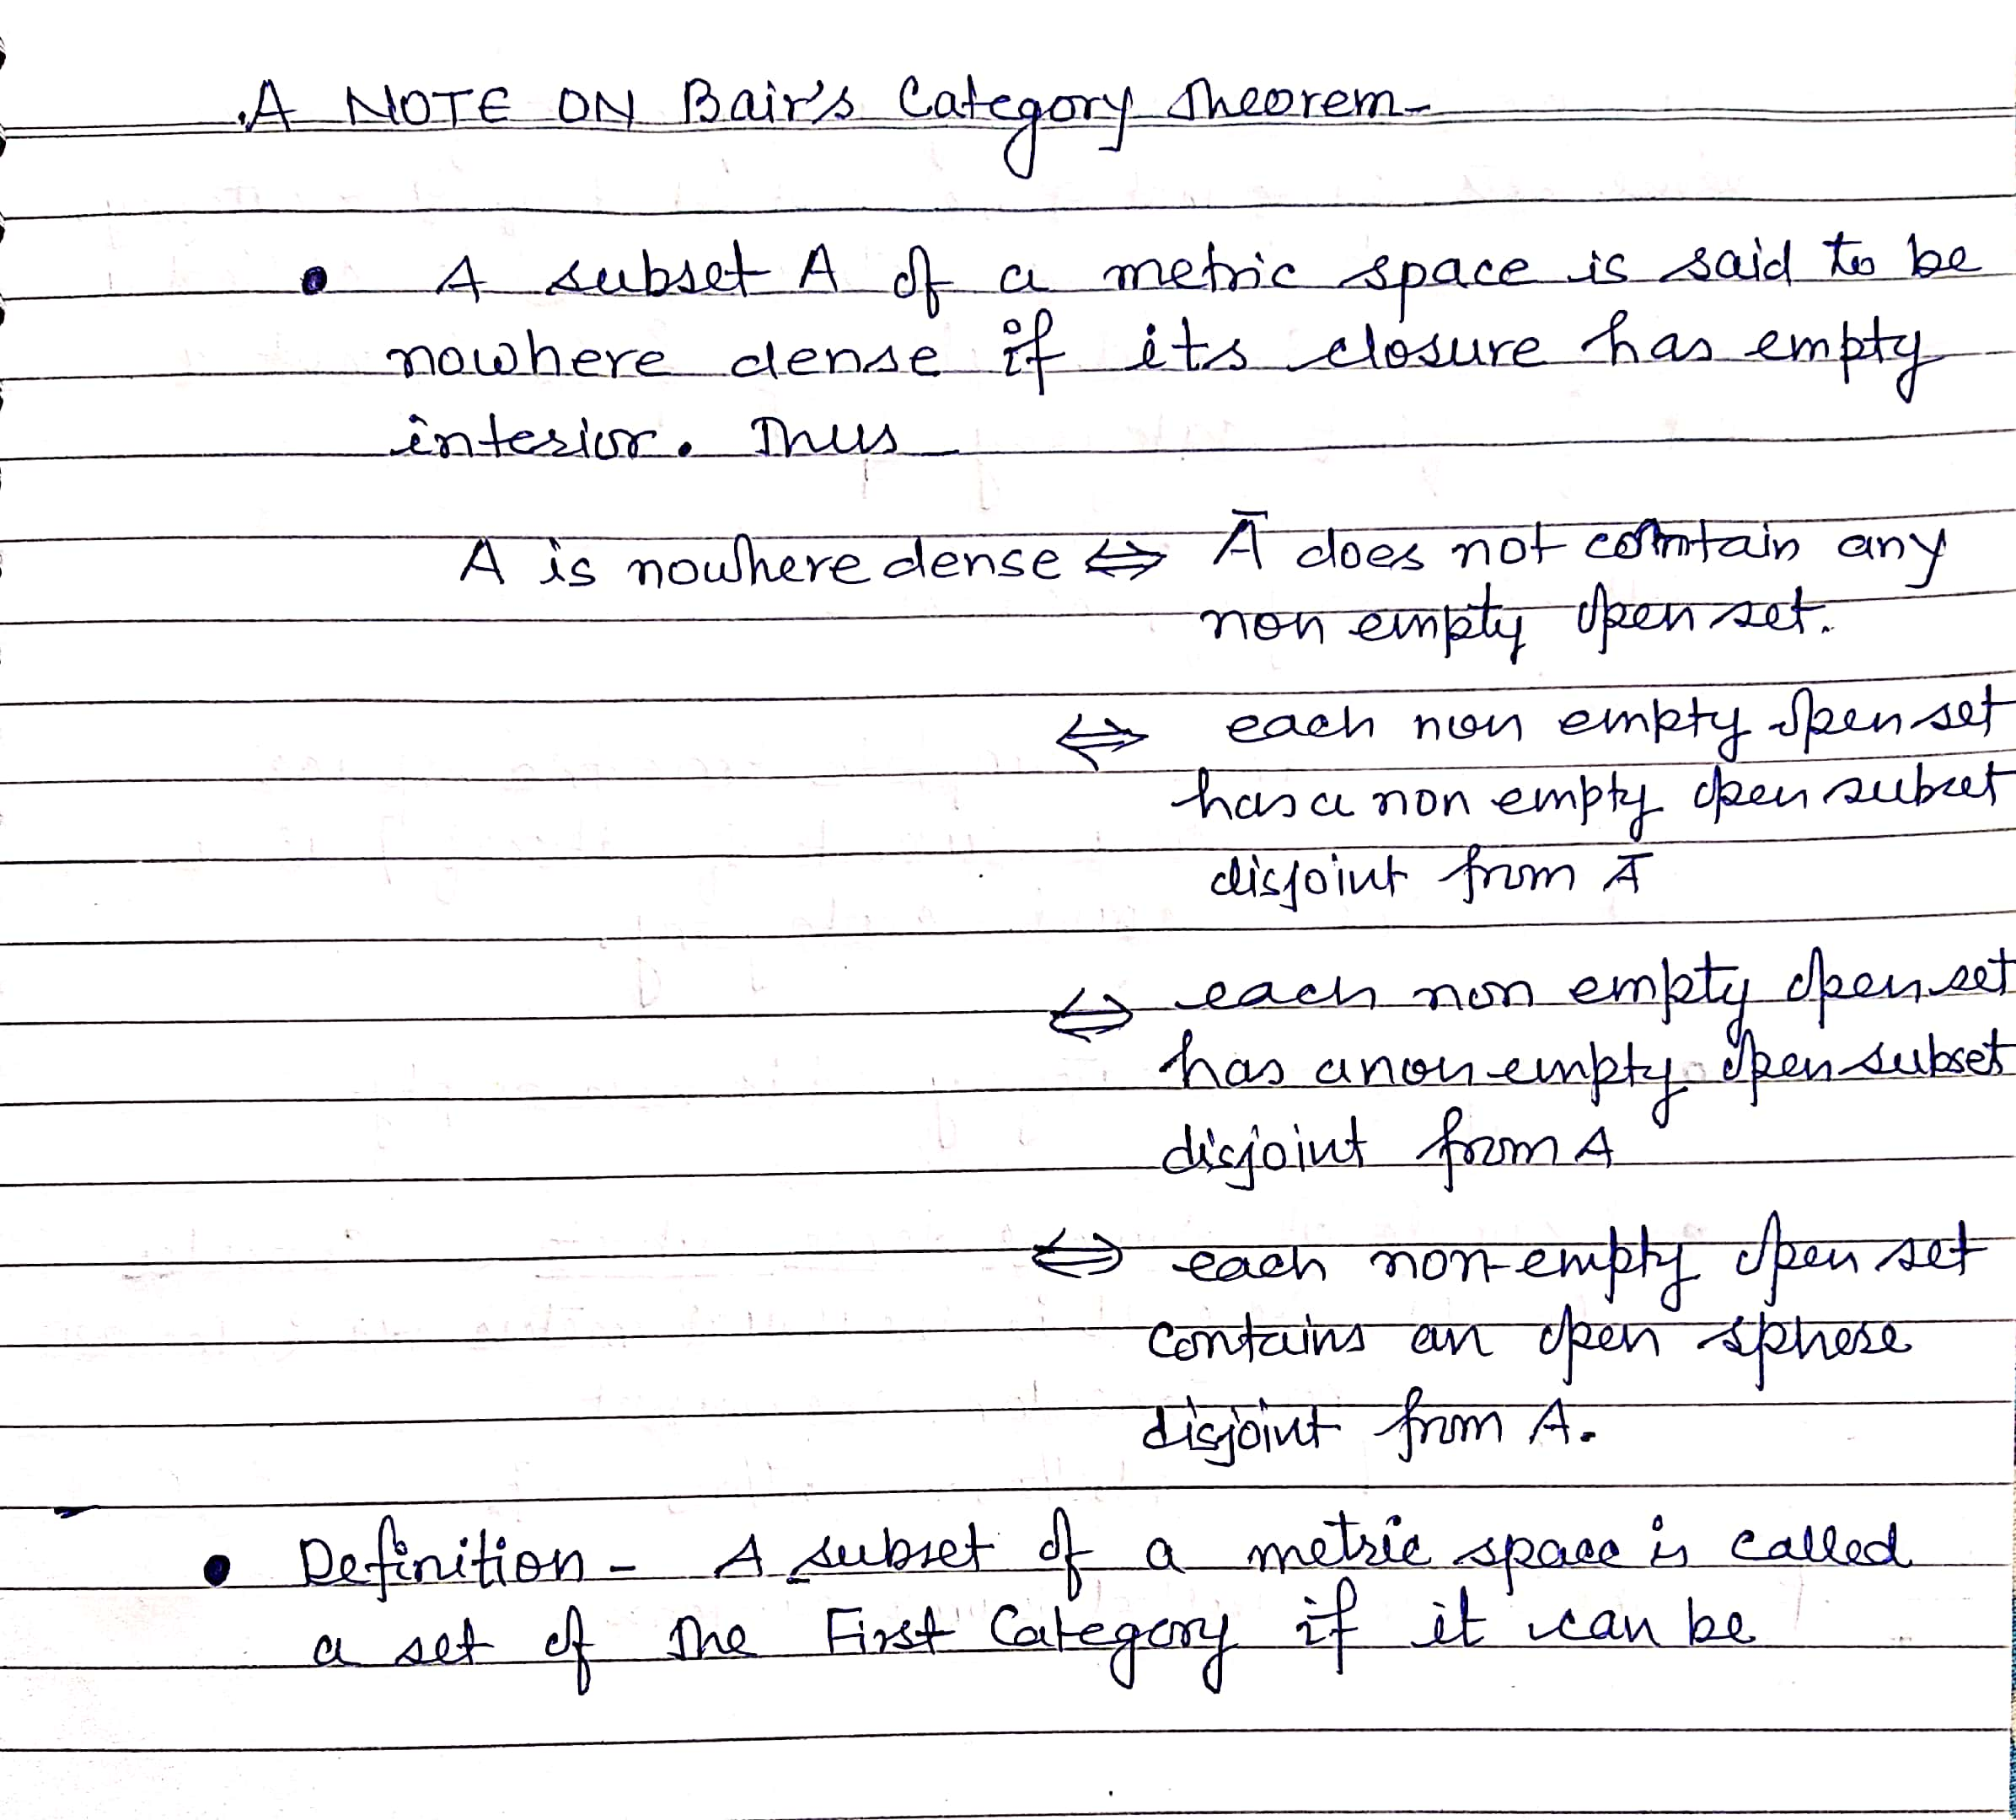 A NOTE ON Bair's Category Theorem-
• A subset A of a metric space is said to be
nowhere dense if its closure has empty
interior. Thus
A is nowhere dense ⇔ Ā does not contain any
non empty open set.
⇔ each non empty open set
has a non empty open subset
disjoint from Ā
⇔ each non empty open set
has a non empty open subset
disjoint from A
⇔ each non-empty open set
contains an open sphere
disjoint from A.
• Definition - A subset of a metric space is called
a set of the First Category if it can be